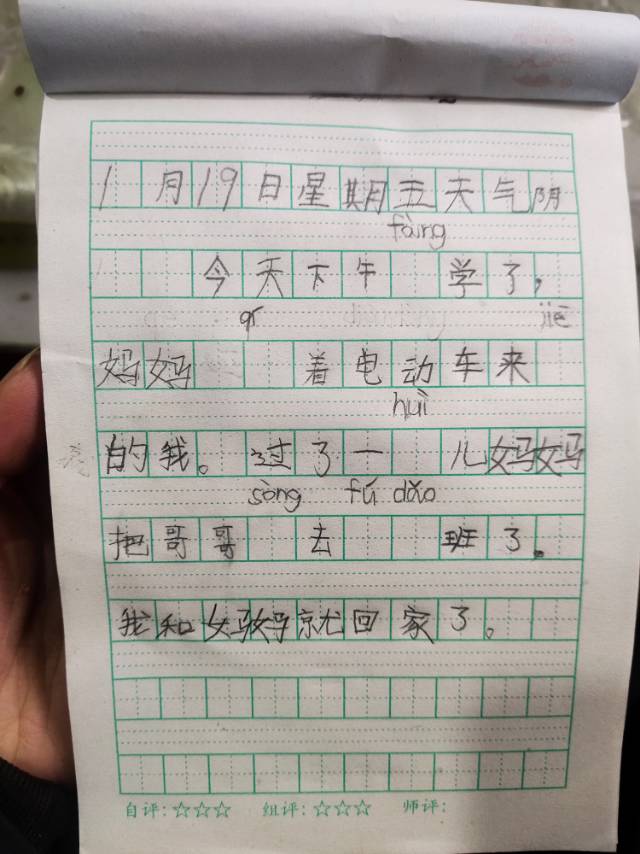 1月19日星期五天气阴
fàng
今天下午 学了，
qí jiē
妈妈 着电动车来
huì
的我。过了一 儿妈妈
sòng fú dǎo
把哥哥 去 班了。
我和妈妈就回家了。
自评：☆☆☆ 组评：☆☆☆ 师评：